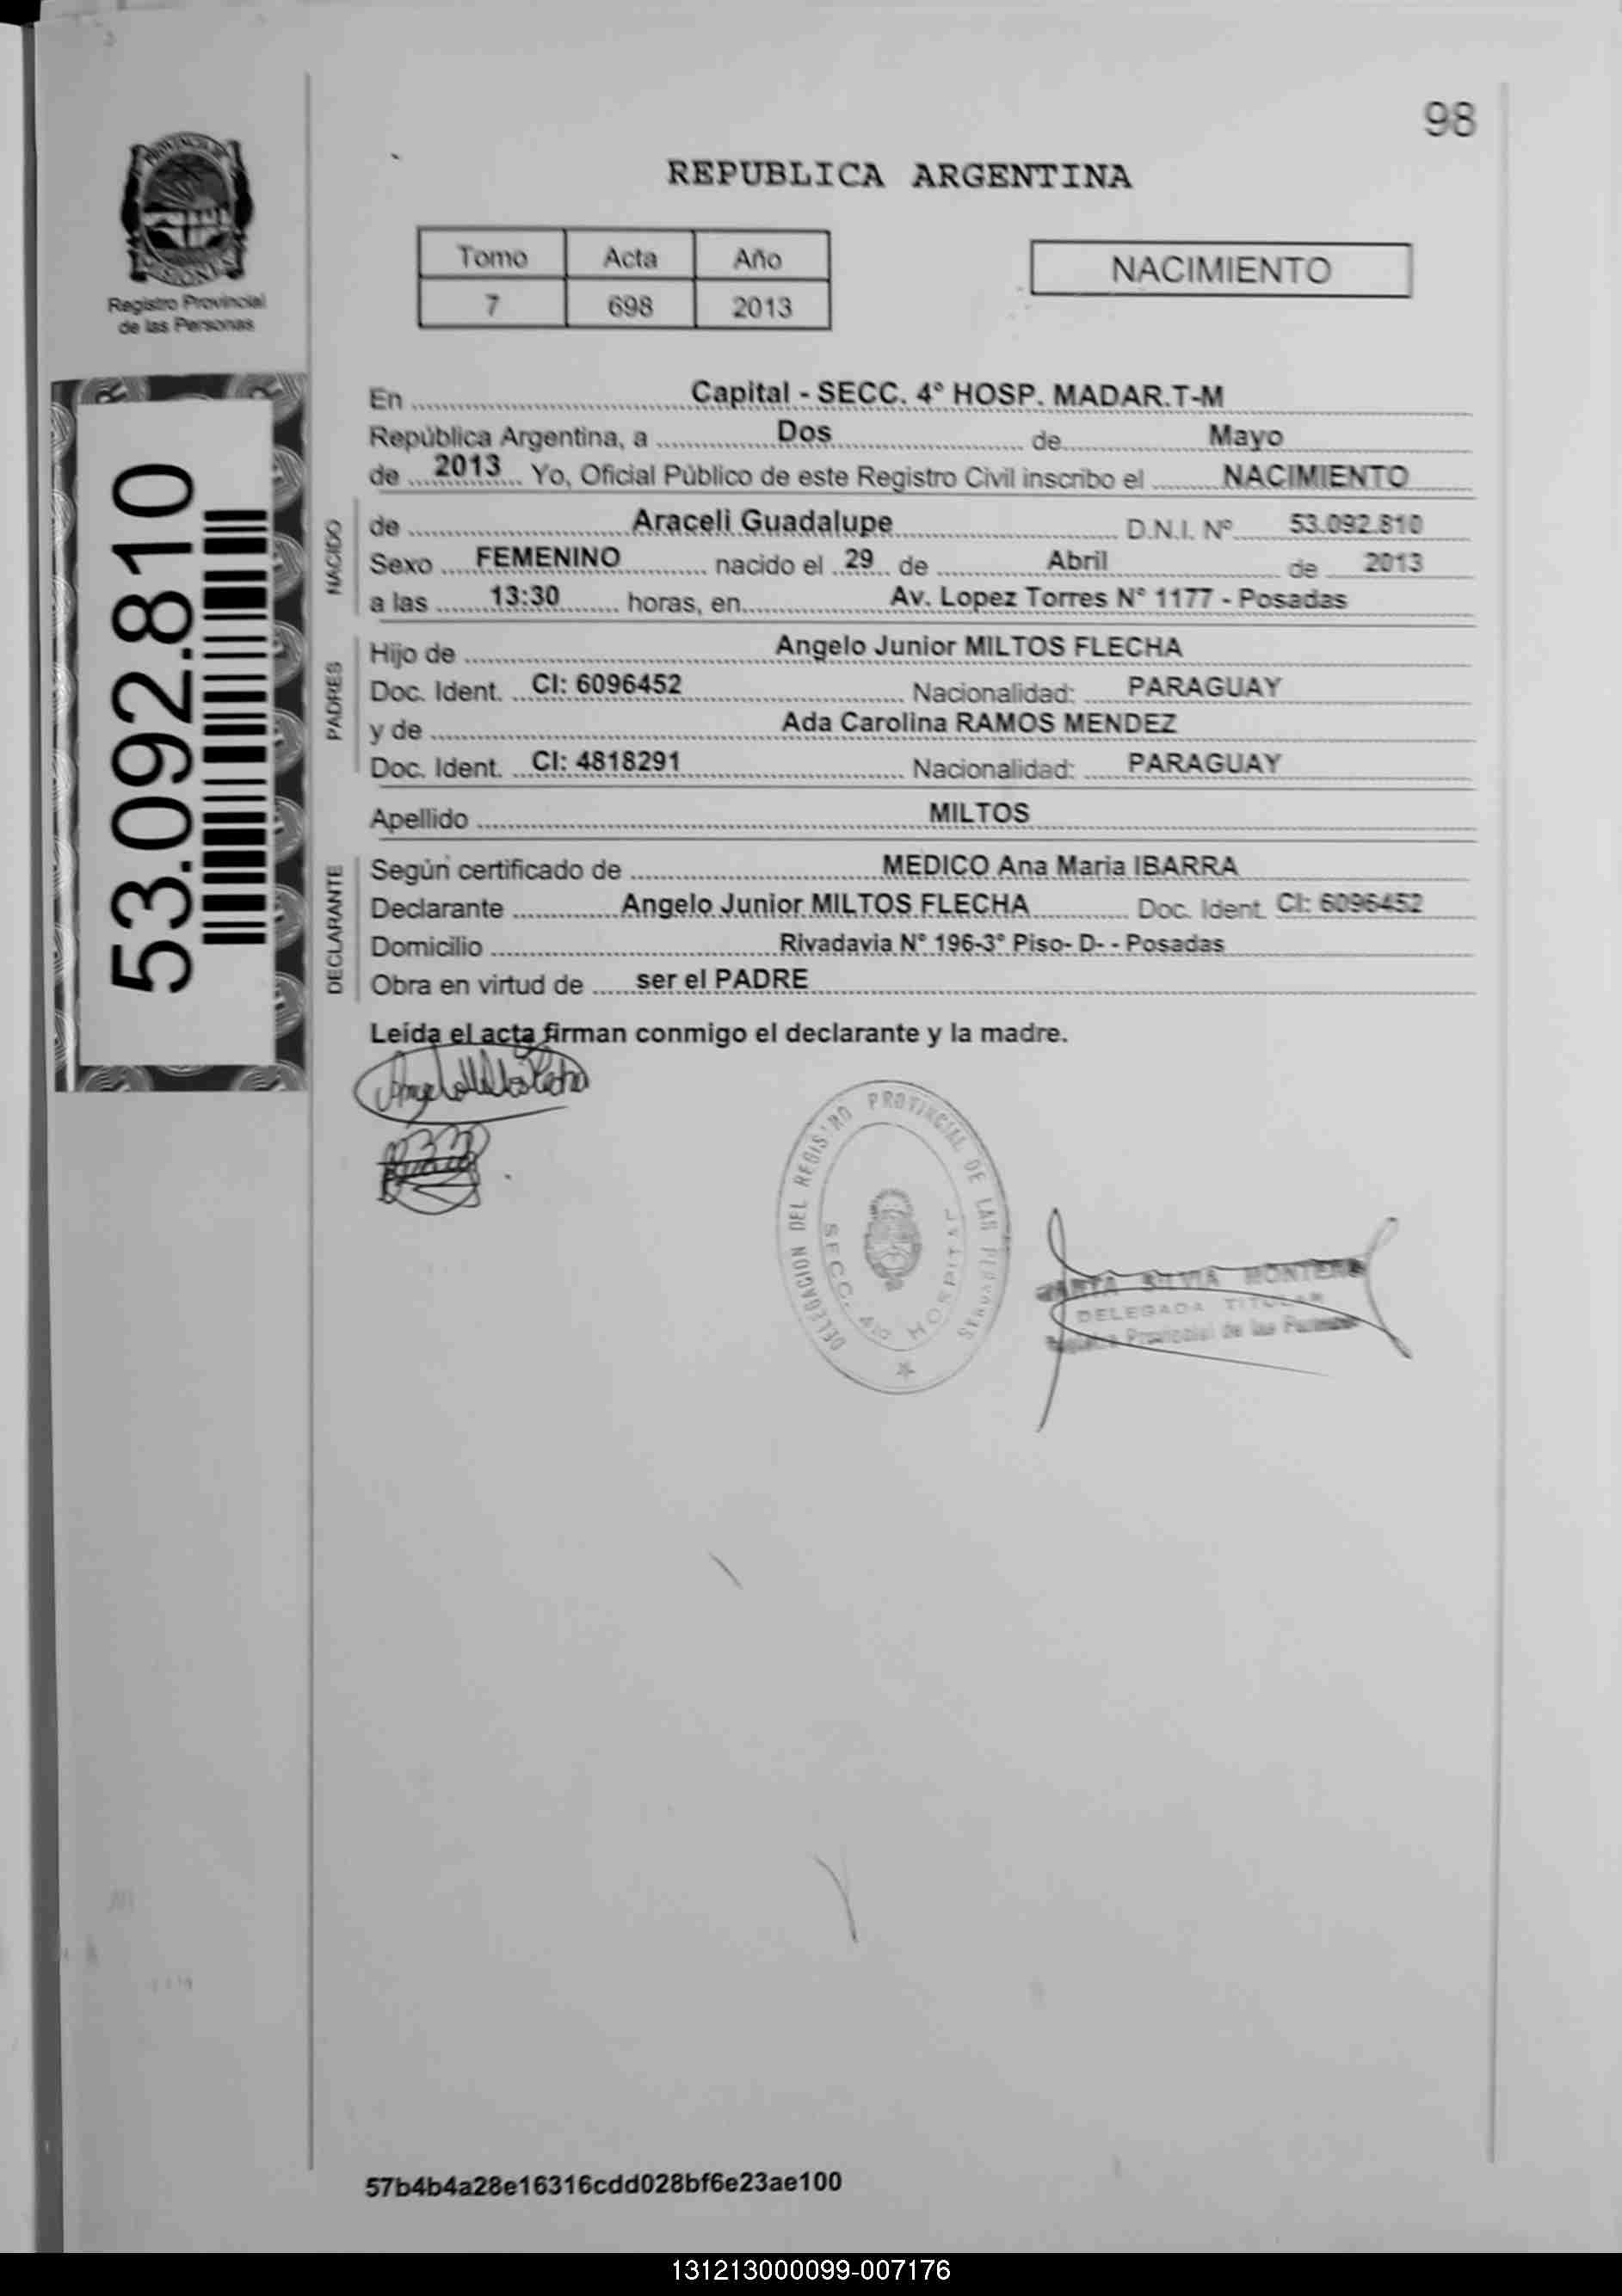 98
REPUBLICA ARGENTINA
Registro Provincial
de las Personas
Tomo Acta Año
7 698 2013
NACIMIENTO
53.092.810
En Capital - SECC. 4° HOSP. MADAR.T-M
República Argentina, a Dos de Mayo
de 2013 Yo, Oficial Público de este Registro Civil inscribo el NACIMIENTO
NACIDO
de Araceli Guadalupe D.N.I. Nº 53.092.810
Sexo FEMENINO nacido el 29 de Abril de 2013
a las 13:30 horas, en Av. Lopez Torres N° 1177 - Posadas
PADRES
Hijo de Angelo Junior MILTOS FLECHA
Doc. Ident. CI: 6096452 Nacionalidad: PARAGUAY
y de Ada Carolina RAMOS MENDEZ
Doc. Ident. CI: 4818291 Nacionalidad: PARAGUAY
Apellido MILTOS
DECLARANTE
Según certificado de MEDICO Ana Maria IBARRA
Declarante Angelo Junior MILTOS FLECHA Doc. Ident. CI: 6096452
Domicilio Rivadavia N° 196-3° Piso- D- - Posadas
Obra en virtud de ser el PADRE
Leída el acta firman conmigo el declarante y la madre.
DELEGACION DEL REGISTRO PROVINCIAL DE LAS PERSONAS
SECC. 4º HOSPITAL
SILVIA MONTERO
DELEGADA TITULAR
Provincial de las Personas
57b4b4a28e16316cdd028bf6e23ae100
131213000099-007176